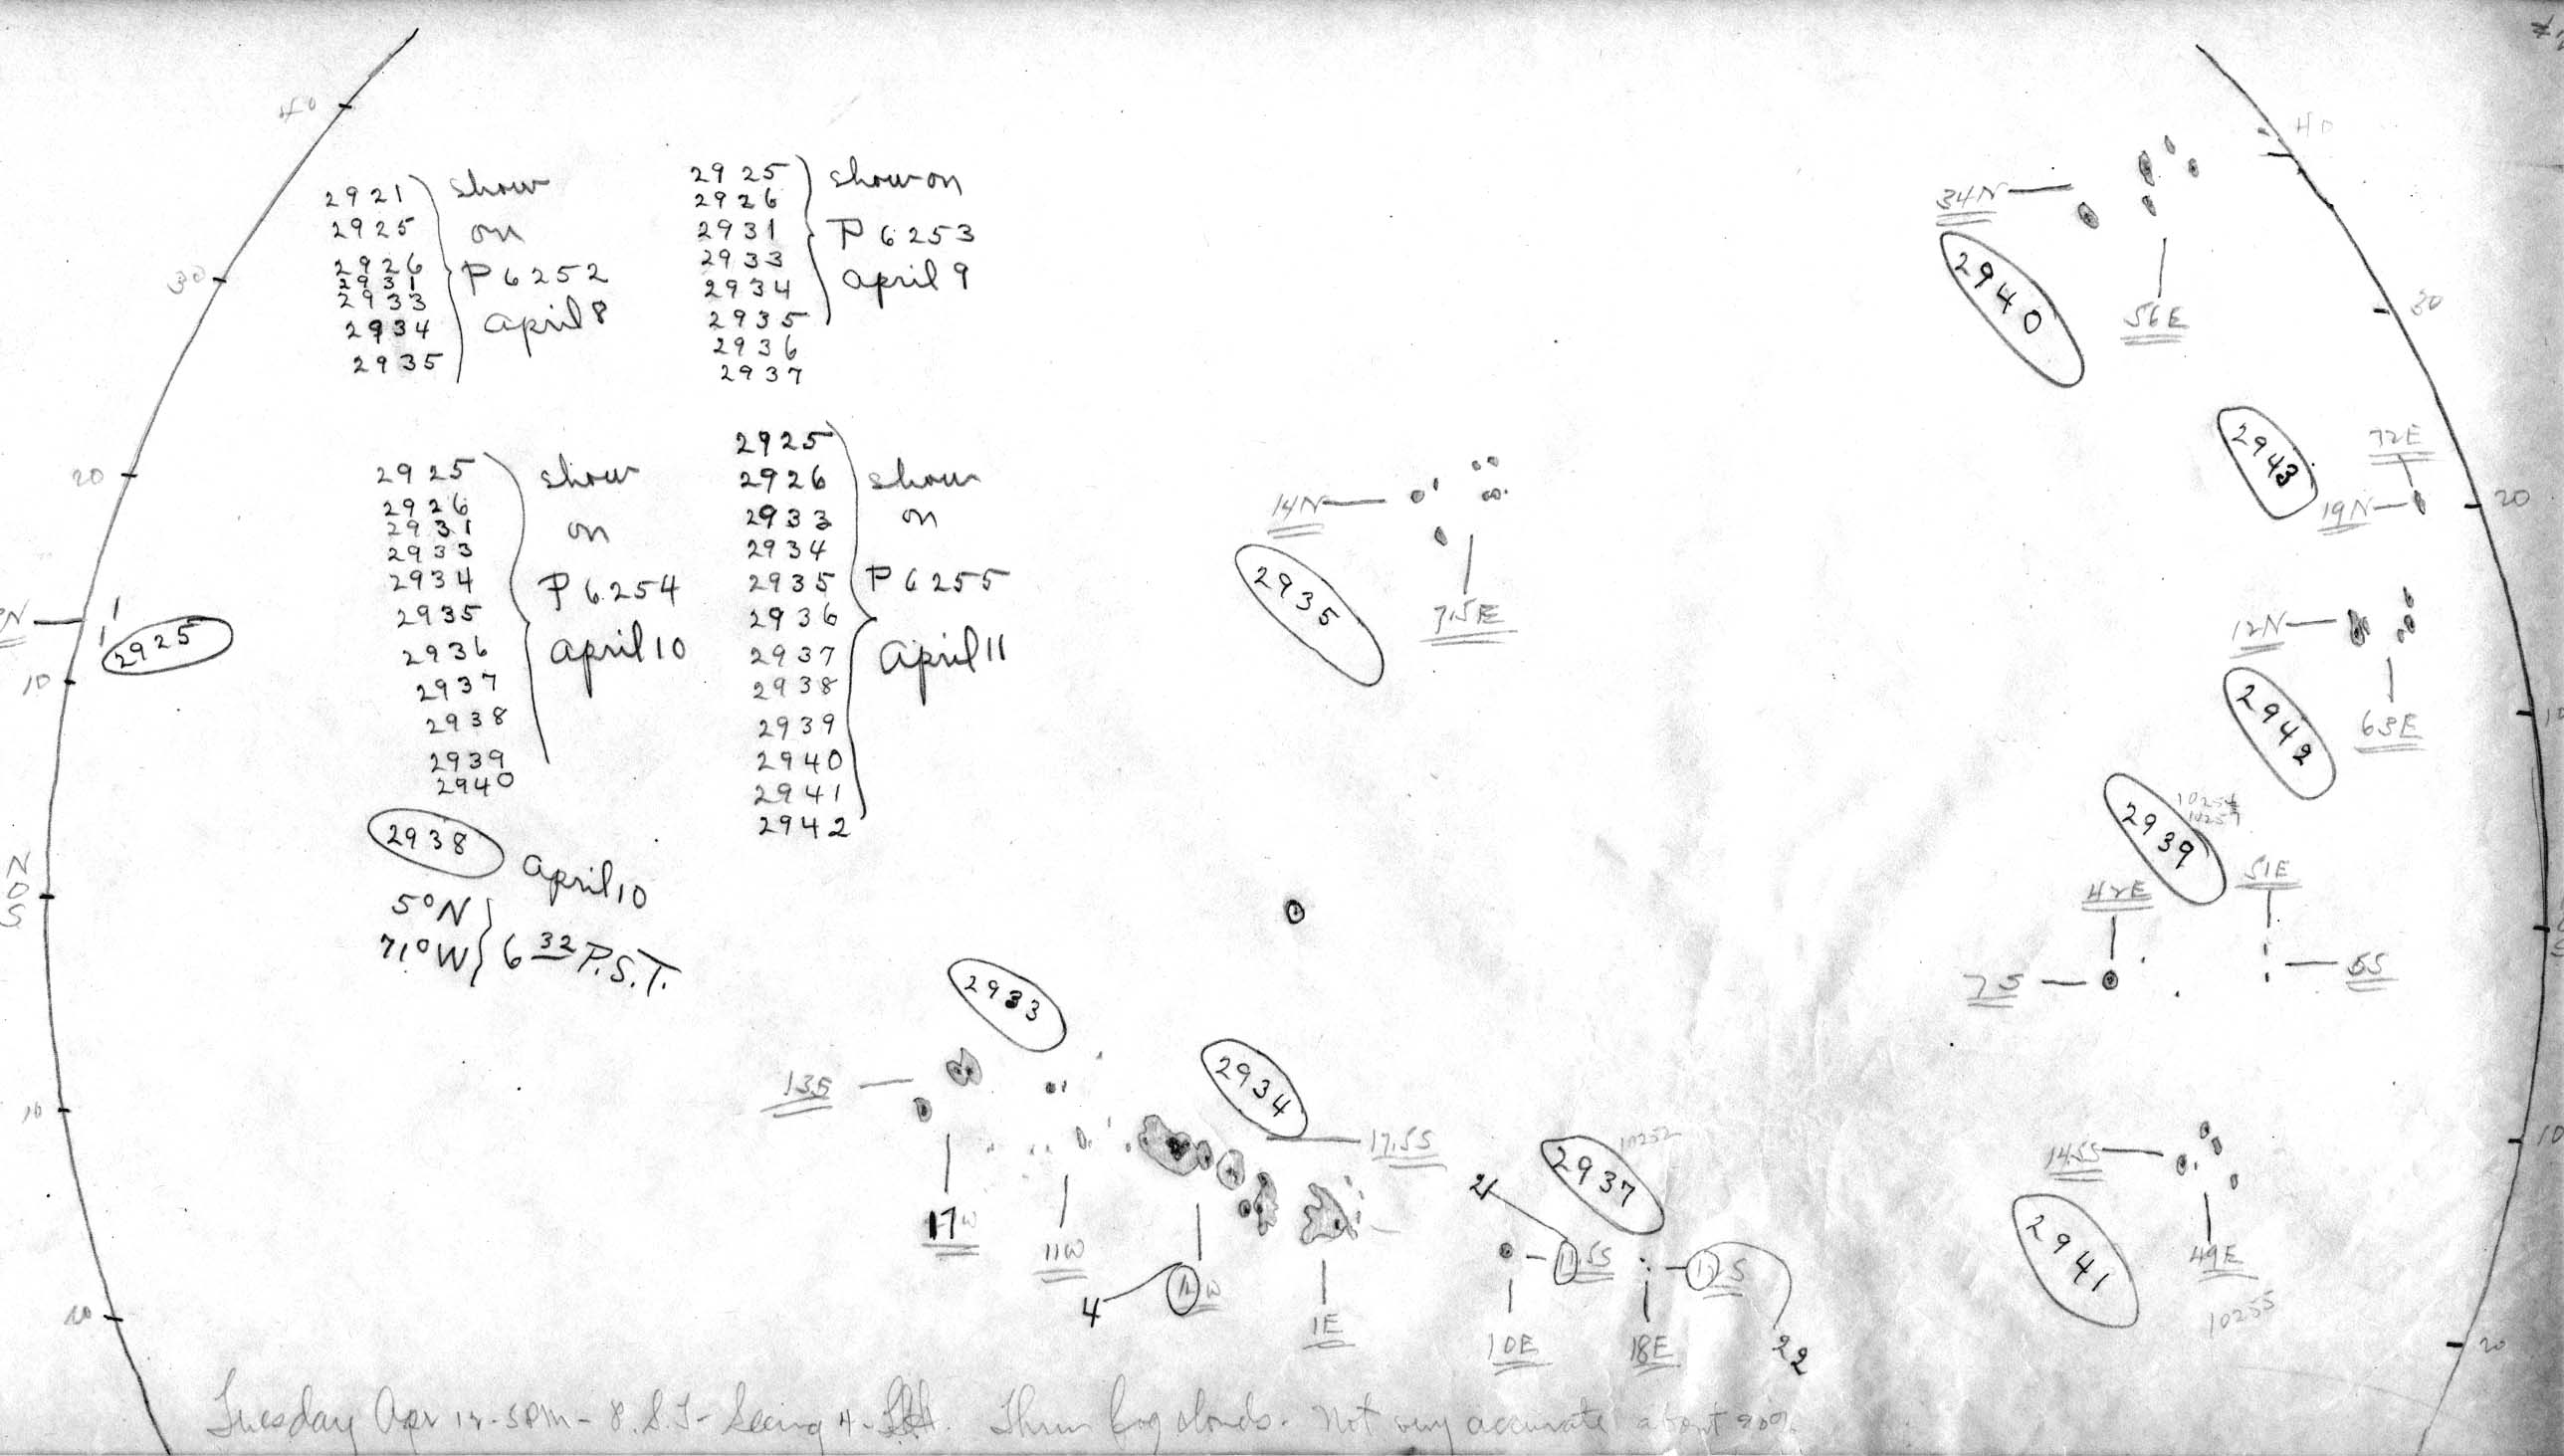 40
2921 } show
2925 on
2926 P6252
2931
2933 April 8
2934
2935
2925 } show on
2926
2931 P6253
2933 April 9
2934
2935
2936
2937
2925 } show
2926
2931 on
2933
2934 P6254
2935
2936 April 10
2937
2938
2939
2940
2925
2926 } show
2933 on
2934
2935 P6255
2936
2937 April 11
2938
2939
2940
2941
2942
2938 April 10
5°N }
71°W } 6 32 P.S.T.
30
20
N
2925
10
N
0
S
10
40
34N
2940
56E
30
2943
72E
19N
20
14N
2935
7.5E
12N
2942
63E
10
2939
10254
10257
42E
51E
7S
2933
13S
17W
11W
2934
17.5S
4
W
1E
2937
10252
21
.5S
10E
18E
S
22
14.5S
2941
49E
10255
10
20
Tuesday Apr 12 - 5PM - 8" S.T - Seeing 4 - Thru fog clouds. Not very accurate about